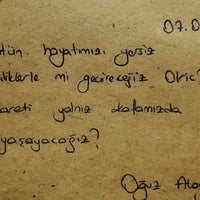 07.0
tün hayatımızı yersiz
liklerle mi geçireceğiz Olric?
areti yalnız kafamızda
yaşayacağız?
Oğuz Ata